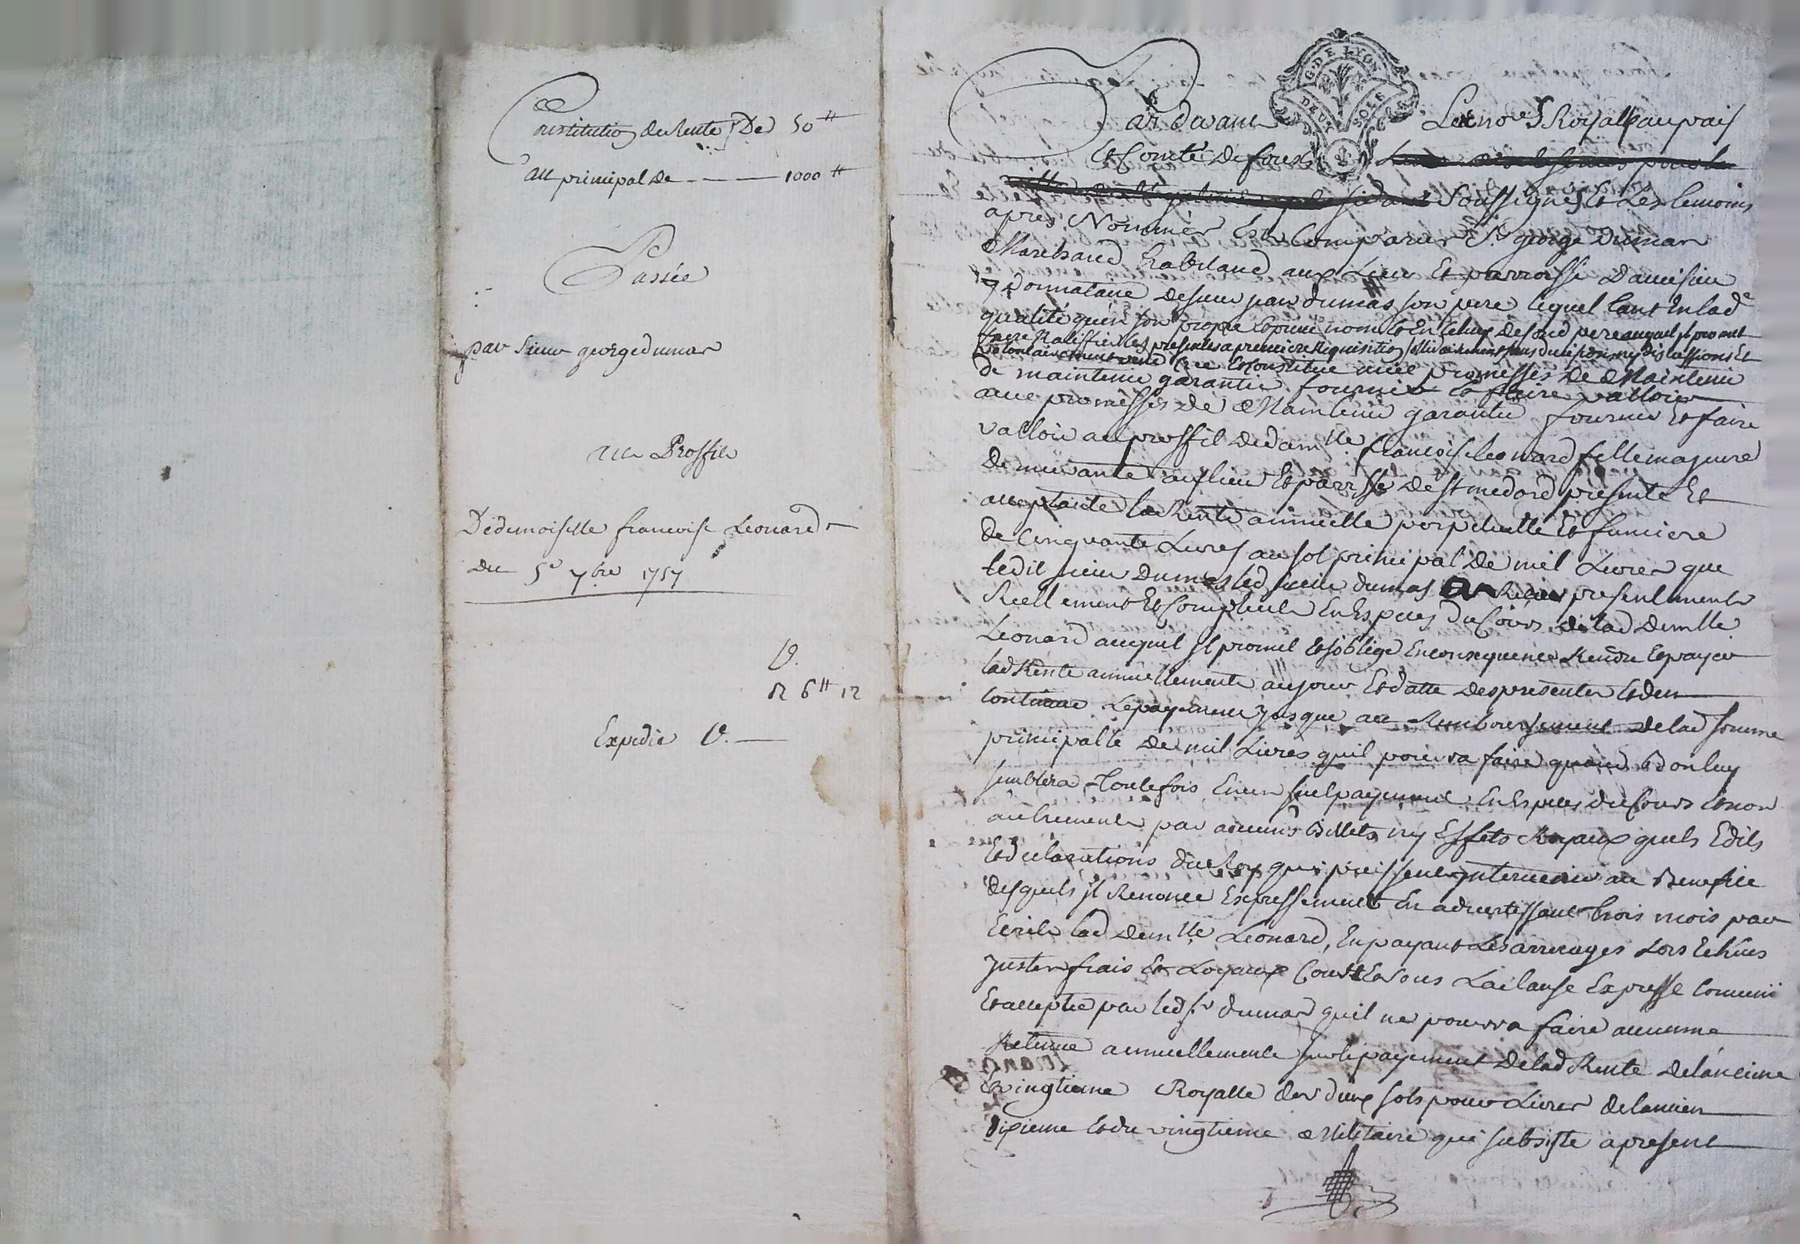 Constitution de Rente De 50ᵗᵗ
Au principal de ——— 1000ᵗᵗ
Passée
par sieur george dumas
au Proffit
De demoiselle francoise Leonard
du 5e 7bre 1757
V.
R 6ᵗᵗ 12
Expedié V. —
G. DE LYON
DEUX SOLS
Pardevant Le no.re Royal au pais
Et Comté de forest
soussigné Et Les temoins
apres Nommés Est Comparu Sr george Dumas
Marchand habitand aux Lieu Et parroisse
donnataire de sieur jean dumas son pere lequel tant En lad.e
qualité qu'en son propre Et privé nom Et En Celuy de son d pere auquel il promet
faire Ratiffier les presentes a premiere Requisition
Volontairement vend Crée Et Constitue avec promesses De Maintenir
de maintenir garantir fournir Et faire valloir
avec promesses de Maintenir garantir fournir Et faire
valloir au proffit de dam.lle francoise Leonard fille majeure
Demeurante au lieu Et parr.sse de st medard presente Et
acceptante la Rente annuelle perpetuelle Et fonciere
de Cinquante Livres au sol principal de mil Livres que
ledit sieur Dumas led sieur dumas a Receu presentement
Reellement Et Comptant En Especes du Cours de lad Demlle.
Leonard auquel il promet Et s'oblige En consequence Rendre Et payer
lad Rente annuellement au jour Et datte des presentes Et d'en
continuer Le payement jusque au Remboursement de lad somme
principalle de mil Livres qu'il pourra faire quand Bon luy
semblera Toutefois En un seul payement En Especes du Cours Et non
autrement par aucuns Billets ny Effets Royaux quels Edits
Et declarations du Roy qui puissent intervenir au Benefice
desquels il Renonce Expressement En advertissant trois mois par
Ecrit lad demlle Leonard, En payant Les arrerages Lors Echus
justes frais Et Loyaux Couts Et sous La clause Expresse Convenu
Et accepté par led sr dumas qu'il ne pourra faire aucune
Retenue annuellement sur le payement de lad Rente
vingtieme Royalle des deux sols pour Livres de l'ancien
dixieme Et du vingtieme Militaire qui subsiste a present